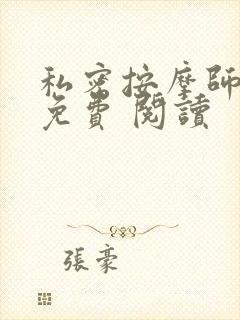 私密按摩師
免費 閱讀
張豪